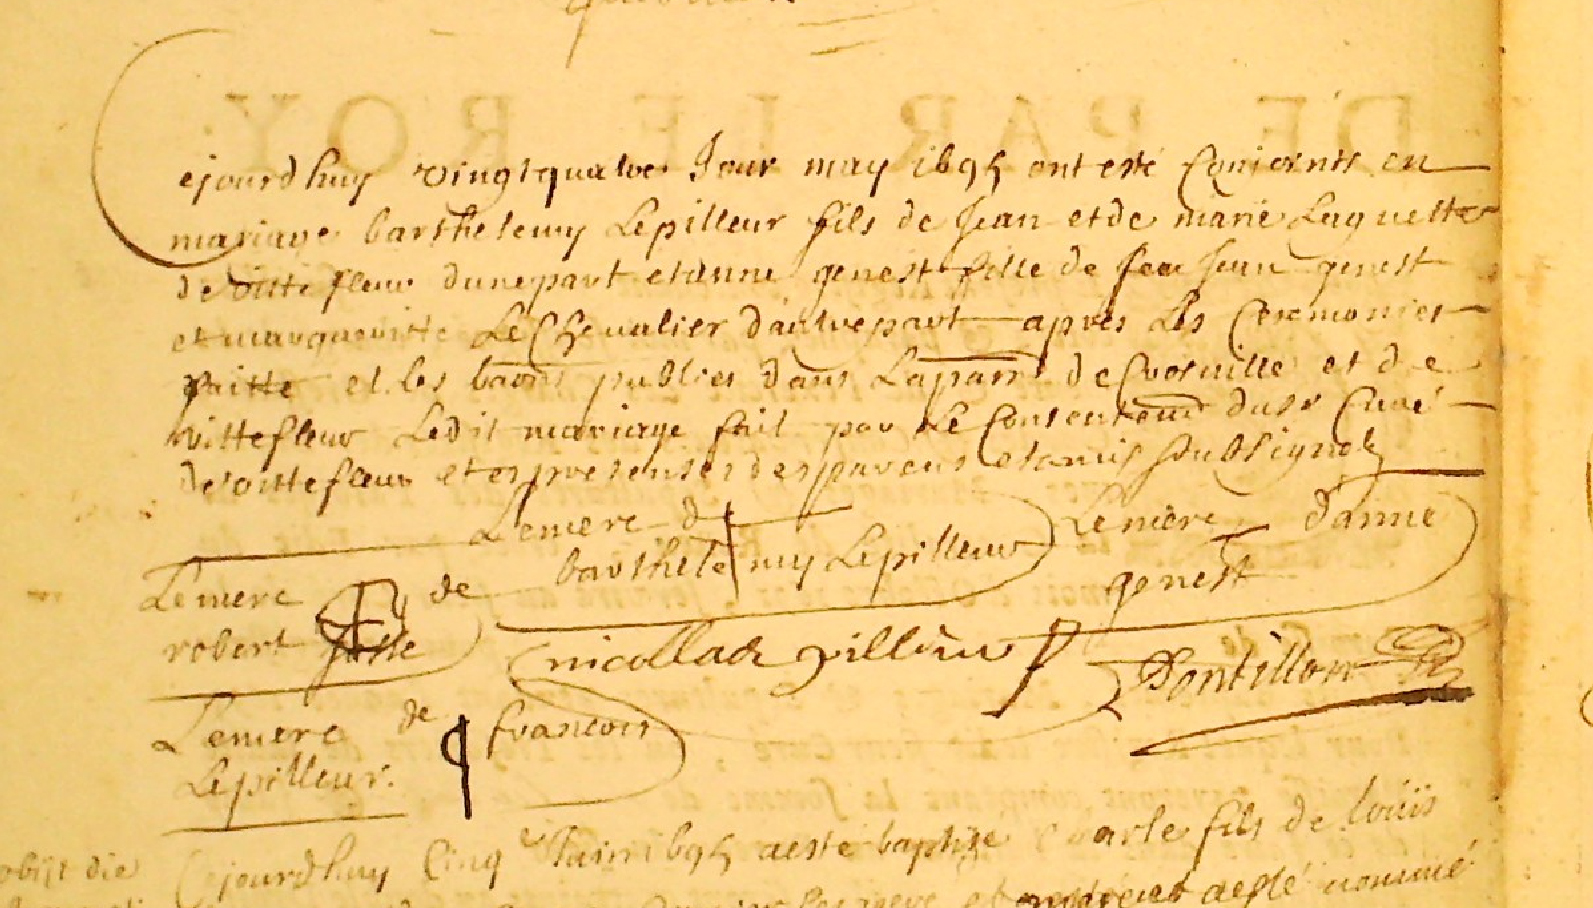 Cejourdhuy vingt quatre Jour may 1695 ont esté Conioints en
mariage barthelemy Lepilleur fils de Jean et de marie Laguette
de vittefleur dunepart et anne genest fille de feu Jean genest
et margueritte Le Chevalier dautrepart apres Les Ceremonies
faitte et les bans publies dans Laparr de Crosville et de
vittefleur Ledit mariage fait par Le Consentemt dusr Curé
de vittefleur et es presenses des parens et amis soubsignez
Lemerc d barthelemy Lepilleur
Lemerc danne genest
Lemerc de robert
nicollas
Lemerc de francois Lepilleur.
Cejourdhuy Cinq Juin 1695 aesté baptize Charle fils de louïs
obijt die
aesté nommé